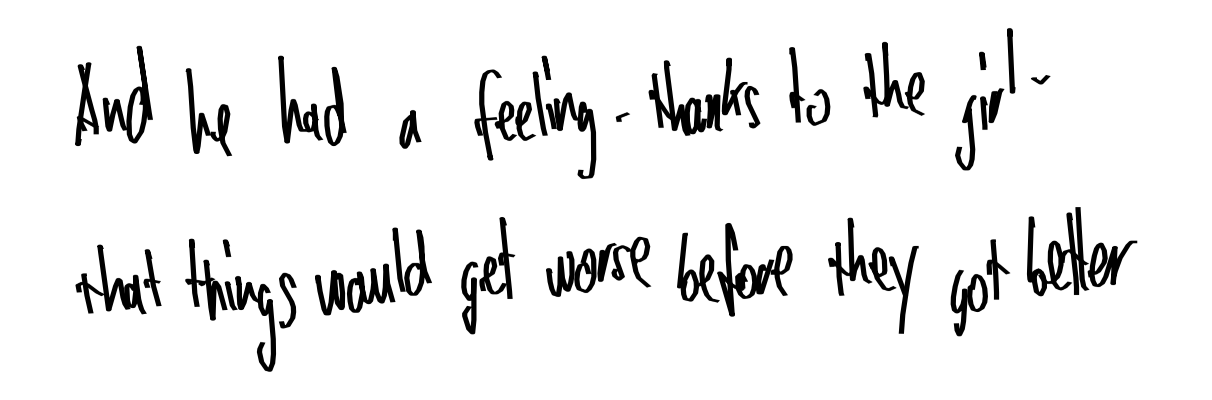 And he had a feeling - thanks to the girl -
that things would get worse before they got better